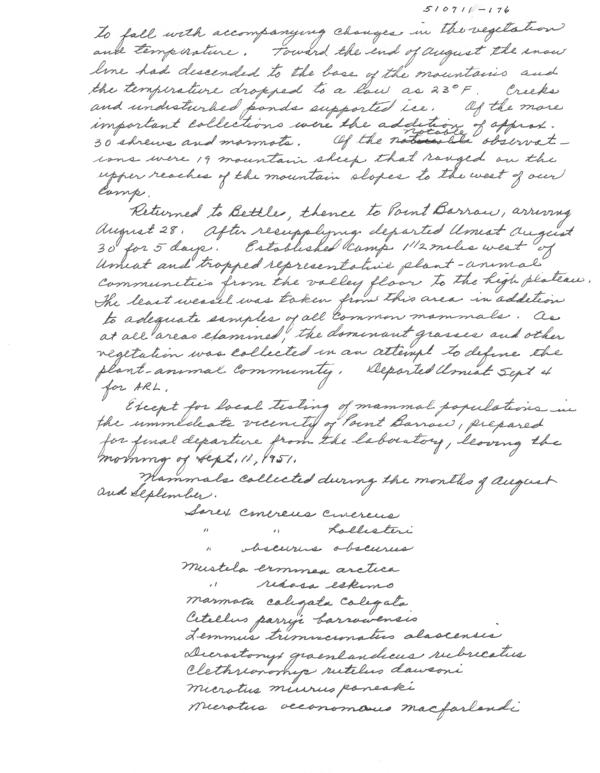 510711-176
to fall with accompanying changes in the vegetation
and temperature. Toward the end of August the snow
line had descended to the base of the mountains and
the temperature dropped to a low as 23°F. Creeks
and undisturbed ponds supported ice. Of the more
important collections were the addition of approx.
30 shrews and marmots. Of the notable observat-
ions were 19 mountain sheep that ranged on the
upper reaches of the mountain slopes to the west of our
Camp.
Returned to Bettles, thence to Point Barrow, arriving
August 28. After resupplying departed Umiat August
30 for 5 days. Established Camp 1 1/2 miles west of
Umiat and trapped representative plant-animal
Communities from the valley floor to the high plateau.
The least weasel was taken from this area in addition
to adequate samples of all common mammals. As
at all areas examined, the dominant grasses and other
vegetation was collected in an attempt to define the
plant-animal community. Departed Umiat Sept 4
for ARL.
Except for local testing of mammal populations in
the immediate vicinity of Point Barrow, prepared
for final departure from the laboratory, leaving the
morning of Sept. 11, 1951.
Mammals collected during the months of August
and September.
Sorex cinereus cinereus
" " hollisteri
" obscurus obscurus
Mustela erminea arctica
" rixosa eskimo
Marmota caligata caligata
Citellus parryi barrowensis
Lemmus trimucronatus alascensis
Dicrostonyx groenlandicus rubricatus
Clethrionomys rutilus dawsoni
Microtus miurus paneaki
Microtus oeconomus macfarlandi